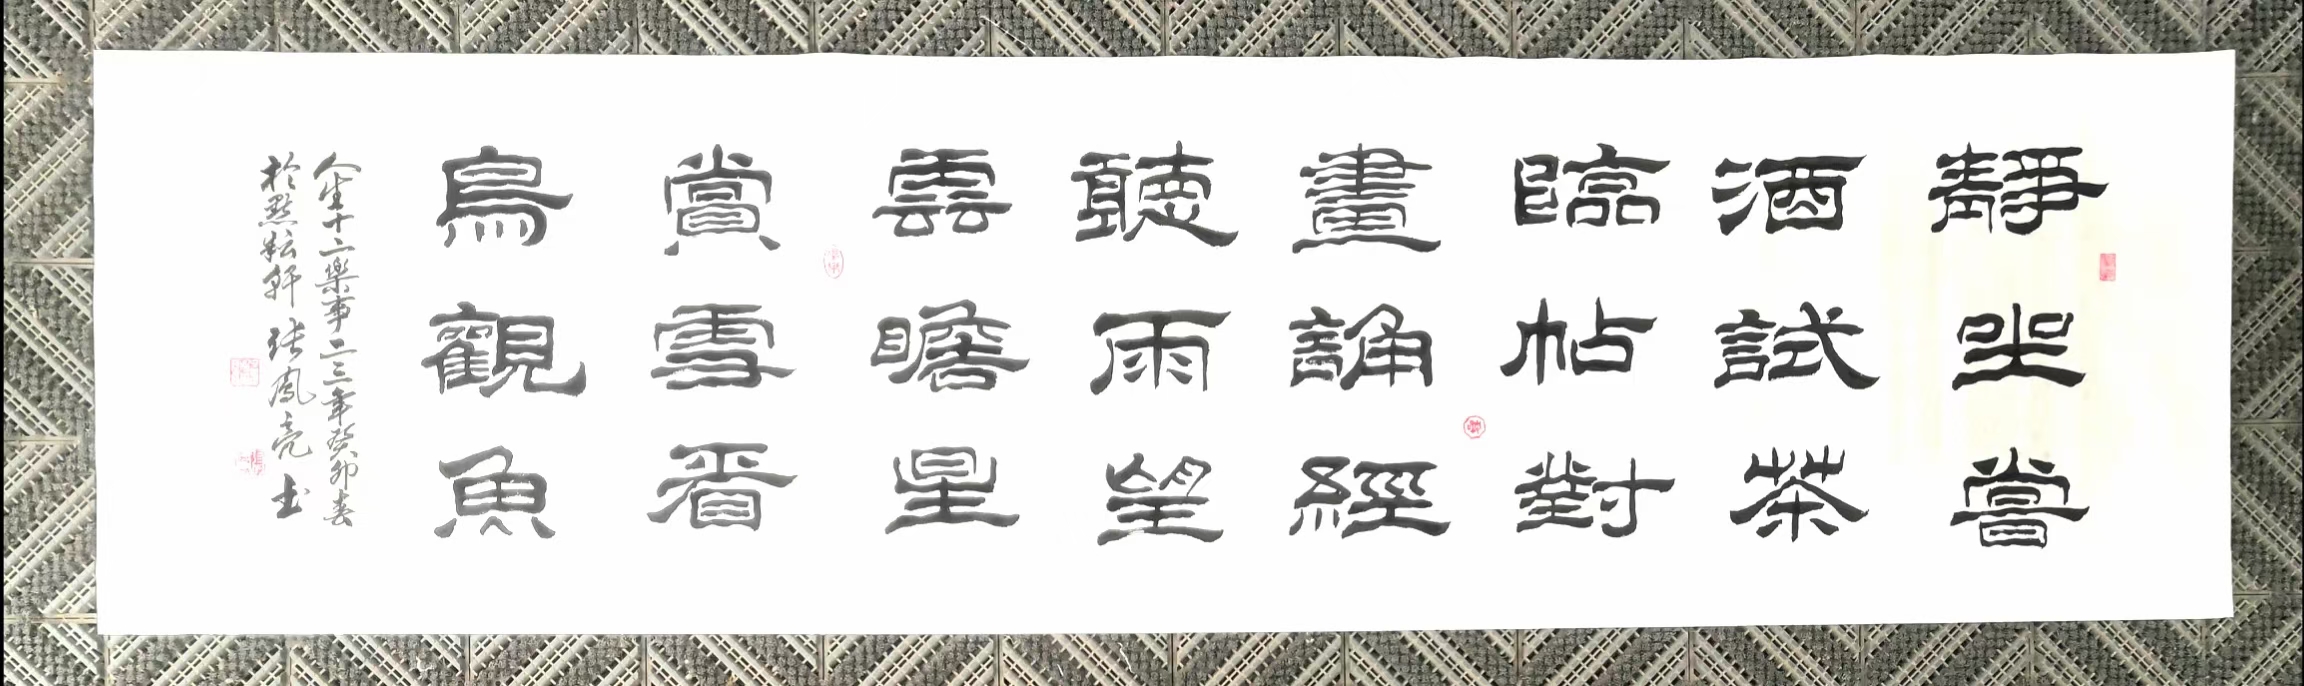 靜坐嘗
酒試茶
臨帖對
畫誦經
聽雨望
雲瞻星
賞雪看
鳥觀魚
人生十二樂事二〇二三年癸卯春
於熙耘軒張鳳亮書